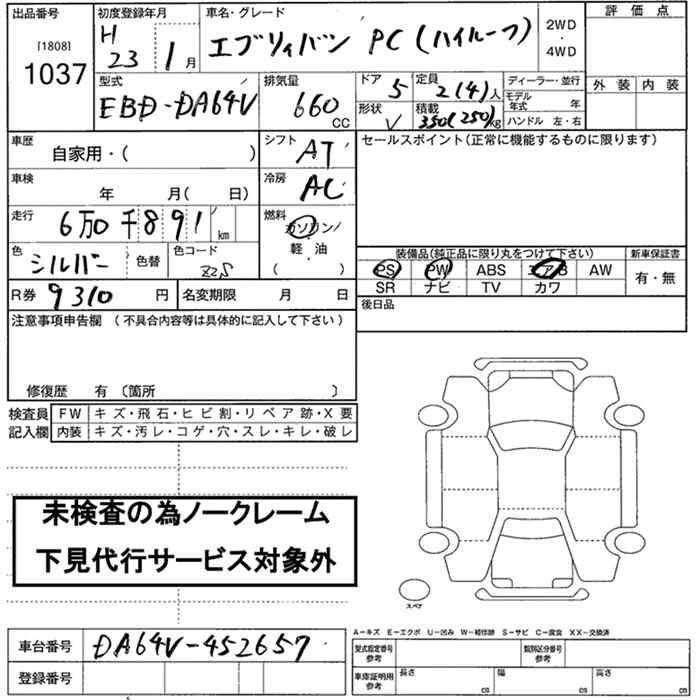 出品番号 初度登録年月 車名・グレード 2WD 評価点
[1808] H エブリィバン PC (ハイルーフ) ・
1037 23 1月 4WD
型式 排気量 ドア 5 定員 2(4)人 ディーラー・並行 外装 内装
EBD-DA64V 660 CC 形状 V 積載 350(250)kg モデル年式 年
ハンドル 左・右
車歴 シフト AT セールスポイント(正常に機能するものに限ります)
自家用・( )
車検 冷房 AC
年 月( 日)
走行 6万0千891 km 燃料 ガソリン
色 シルバー 色替 色コード Z2S 軽・油
( ) 装備品(純正品に限り丸をつけて下さい) 新車保証書
PS PW ABS エアB AW 有・無
R券 9310 円 名変期限 月 日 SR ナビ TV カワ
注意事項申告欄 (不具合内容等は具体的に記入して下さい) 後日品
修復歴 有 〔箇所 〕
検査員 FW キズ・飛石・ヒビ割・リペア跡・X要
記入欄 内装 キズ・汚レ・コゲ・穴・スレ・キレ・破レ
未検査の為ノークレーム
下見代行サービス対象外
スペア
A-キズ E-エクボ U-凹み W-補修跡 S-サビ C-腐食 XX-交換済
車台番号 DA64V-452657 型式指定番号 参考 類別区分番号 参考
登録番号 車庫証明用 参考 長さ cm 幅 cm 高さ cm